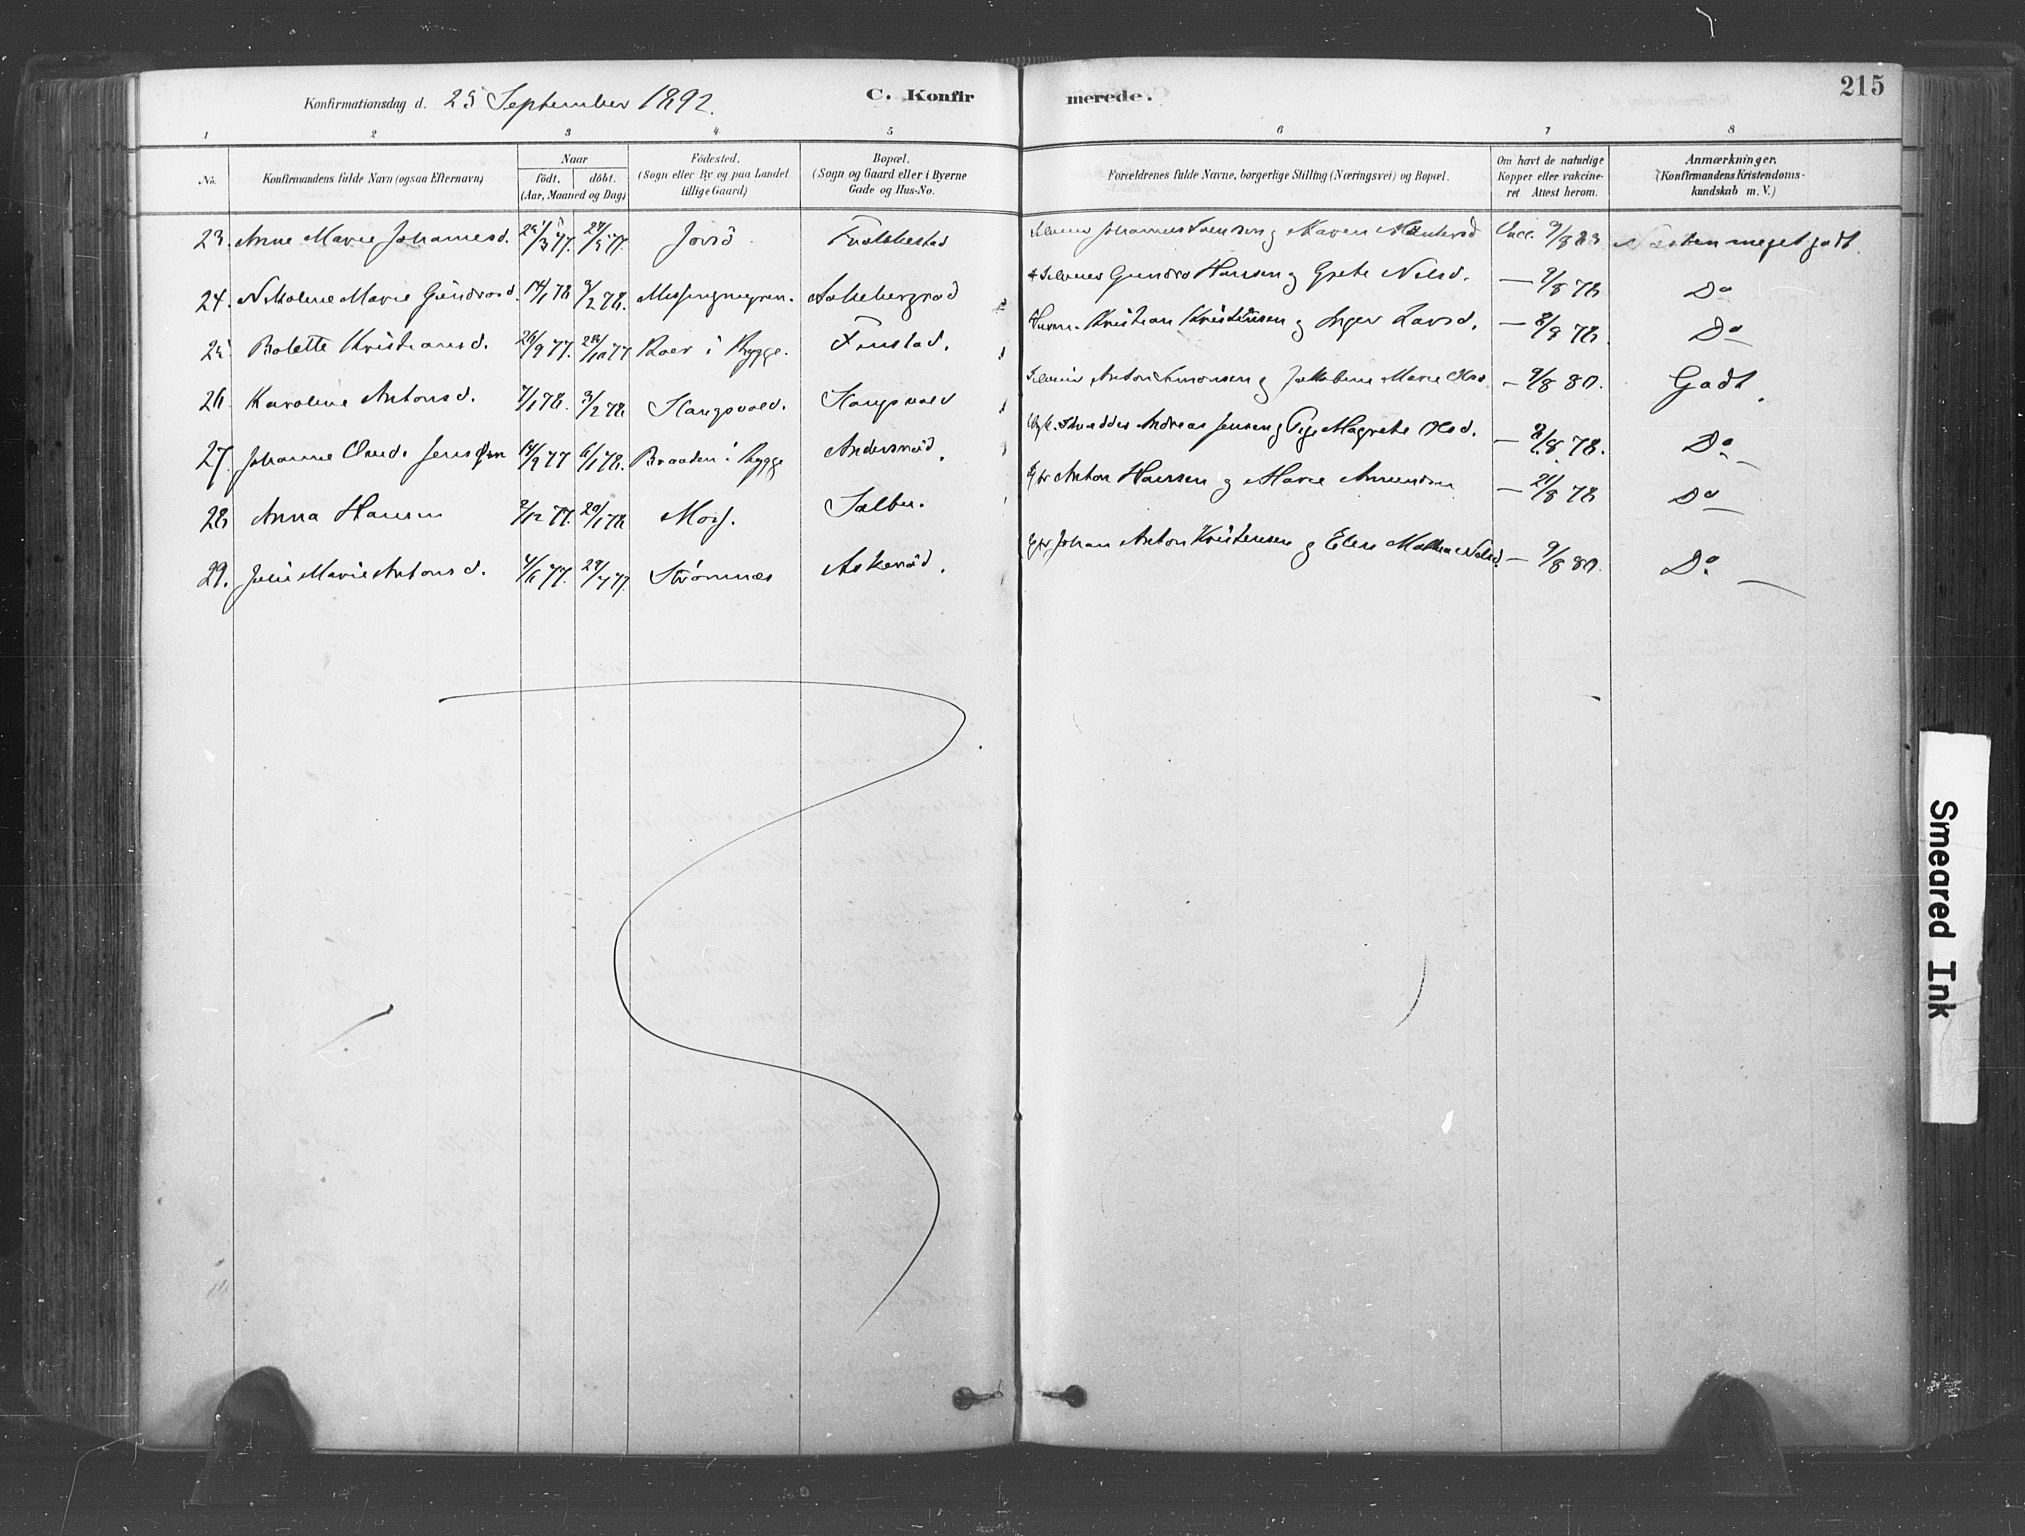 Konfirmationsdag d. 25 September 1892.
C. Konfirmerede.
215
1 2 3 4 5 6 7 8
No.
Konfirmandens fulde Navn (ogsaa Efternavn)
Naar
födt. döbt.
(Aar, Maaned og Dag)
Födested.
(Sogn eller By og paa Landet tillige Gaard)
Bopæl.
(Sogn og Gaard eller i Byerne Gade og Hus-No.
Forældrenes fulde Navne, borgerlige Stilling (Næringsvei) og Bopæl.
Om havt de naturlige Kopper eller vakcineret Attest herom.
Anmærkninger.
(Konfirmandens Kristendomskundskab m. V.)
23. Anne Marie Johannesd. /3 77. /5 77. Johannes Svensen og Maren 9/8 83 Næsten meget godt
24. Nikoline Marie Gundrosd. 14/1 78 /2 78. Missingmyren. Gundro Hansen og Grete Nilsd. — 9/8 78 Do
25 Bolette Kristiansd. 26/9 77. 28/10 77 Roer i Rygge. Finstad. Kristian Kristensen og Inger Larsd. — 78. Do
26. Karoline Antonsd. 7/1 78. 3/2 78 Haugsvold. Haugsvold Anton Simonsen og Jakobine Marie Olsd. — 9/8 80. Godt.
27. Johanne Jens 77 6/1 78. Braaten i Rygge Andersröd. Andreas Jensen og Magrete Olsd. — /8 78. Do
28 Anna Hansen /12 77. 20/1 78 Moss. Anton Hansen og Marie Amundsen — 21/8 78 Do
29. Julie Marie Antonsd. 4/6 77. 29/7 77. Strömnæs Askeröd. Johan Anton Kristensen og Elen Nilsd. — 9/8 80. Do.
Smeared Ink